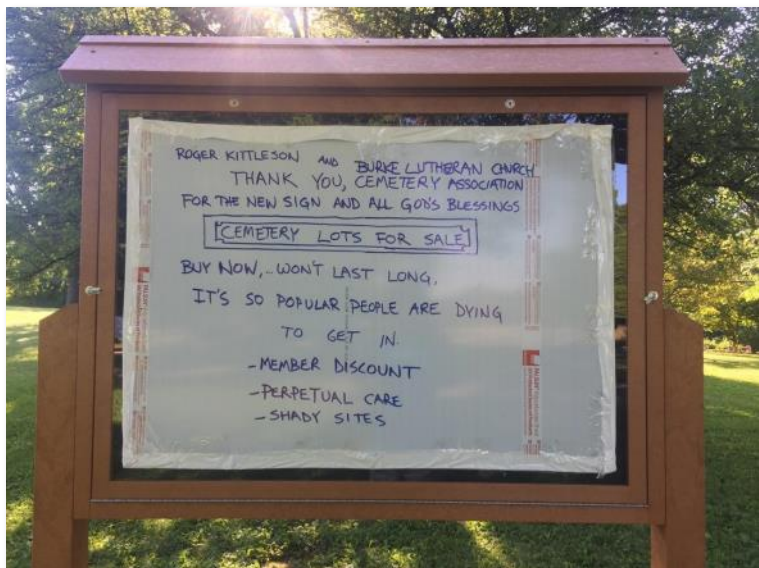 ROGER KITTLESON AND BURKE LUTHERAN CHURCH
THANK YOU, CEMETERY ASSOCIATION
FOR THE NEW SIGN AND ALL GOD'S BLESSINGS
CEMETERY LOTS FOR SALE
BUY NOW,-WON'T LAST LONG,
IT'S SO POPULAR PEOPLE ARE DYING
TO GET IN.
-MEMBER DISCOUNT
-PERPETUAL CARE
-SHADY SITES